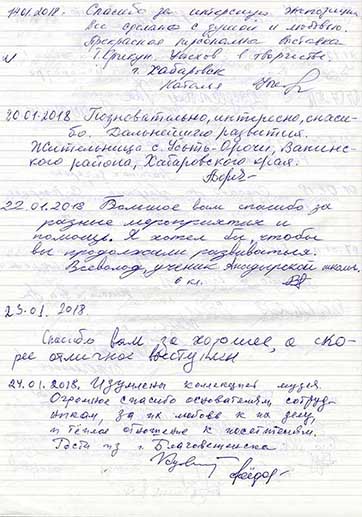 19.01.2018. Спасибо за интересную экспозицию
все сделано с душой и любовью.
Прекрасная персональная выставка
г. Хабаровск
Наталья
20.01.2018 Познавательно, интересно, спаси-
бо. Дальнейшего развития.
Жительница с. Усть-Орочи, Ванинс-
кого района, Хабаровского края.
22.01.2018 Большое вам спасибо за
разные мероприятия и
помощь. Я хотел бы, чтобы
вы продолжали развиваться.
Всеволод, ученик школы
6 кл.
23.01.2018.
Спасибо вам за хорошее, а ско-
рее отличное
24.01.2018. Изумлены колекцией музея.
Огромное спасибо основателям, сотруд-
никам, за их любовь к их делу,
и тёплое отношение к посетителям.
Гости из г. Благовещенска